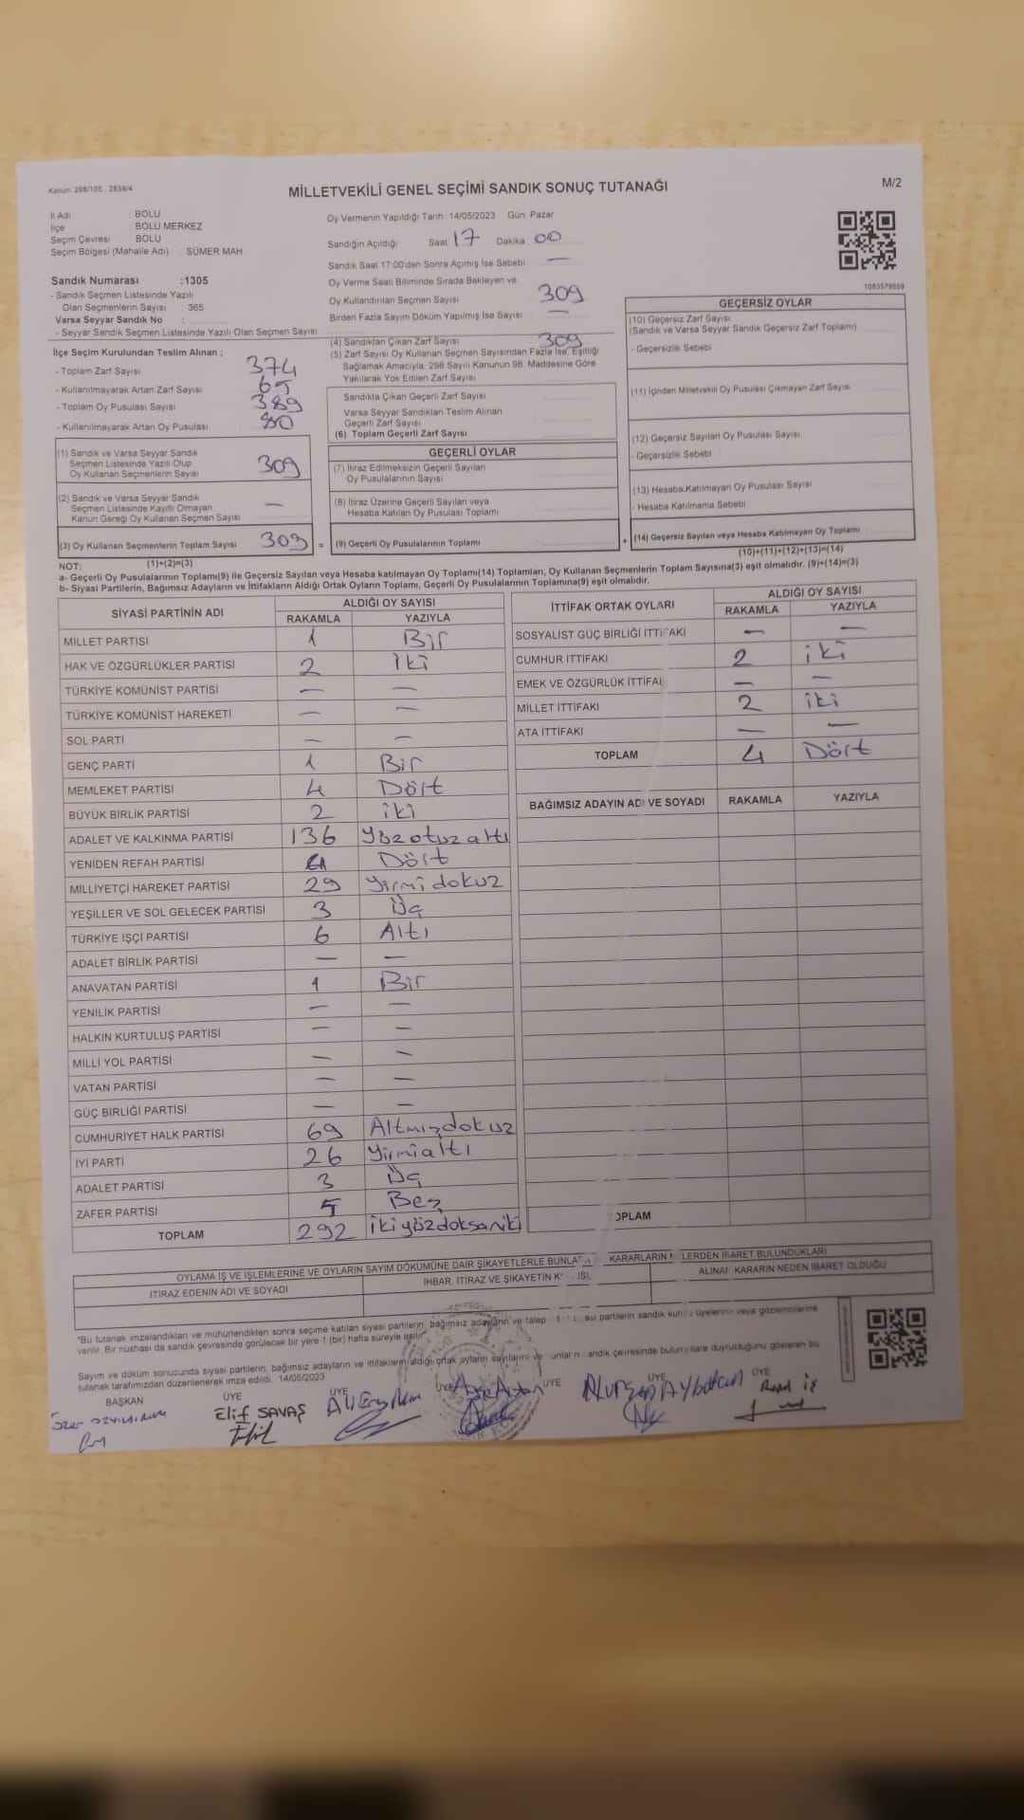 Kanun: 298/105, 2839/4
MİLLETVEKİLİ GENEL SEÇİMİ SANDIK SONUÇ TUTANAĞI
M/2
İl Adı : BOLU
İlçe BOLU MERKEZ
Seçim Çevresi BOLU
Seçim Bölgesi (Mahalle Adı) SÜMER MAH
Oy Vermenin Yapıldığı Tarih: 14/05/2023 Gün: Pazar
Sandığın Açıldığı Saat 17 Dakika 00
Sandık Saat 17:00'den Sonra Açılmış İse Sebebi —
Sandık Numarası :1305
- Sandık Seçmen Listesinde Yazılı
Olan Seçmenlerin Sayısı : 365
Varsa Seyyar Sandık No :
- Seyyar Sandık Seçmen Listesinde Yazılı Olan Seçmen Sayısı
Oy Verme Saati Bitiminde Sırada Bekleyen ve
Oy Kullandırılan Seçmen Sayısı 309
Birden Fazla Sayım Döküm Yapılmış İse Sayısı —
İlçe Seçim Kurulundan Teslim Alınan :
- Toplam Zarf Sayısı 374
- Kullanılmayarak Artan Zarf Sayısı 65
- Toplam Oy Pusulası Sayısı 389
- Kullanılmayarak Artan Oy Pusulası 80
(1) Sandık ve Varsa Seyyar Sandık
Seçmen Listesinde Yazılı Olup
Oy Kullanan Seçmenlerin Sayısı 309
(2) Sandık ve Varsa Seyyar Sandık
Seçmen Listesinde Kayıtlı Olmayan
Kanun Gereği Oy Kullanan Seçmen Sayısı —
(3) Oy Kullanan Seçmenlerin Toplam Sayısı 309 =
(1)+(2)=(3)
(4) Sandıktan Çıkan Zarf Sayısı 309
(5) Zarf Sayısı Oy Kullanan Seçmen Sayısından Fazla İse, Eşitliği
Sağlamak Amacıyla, 298 Sayılı Kanunun 98. Maddesine Göre
Yakılarak Yok Edilen Zarf Sayısı
Sandıkta Çıkan Geçerli Zarf Sayısı
Varsa Seyyar Sandıktan Teslim Alınan
Geçerli Zarf Sayısı
(6) Toplam Geçerli Zarf Sayısı
GEÇERLİ OYLAR
(7) İtiraz Edilmeksizin Geçerli Sayılan
Oy Pusulalarının Sayısı
(8) İtiraz Üzerine Geçerli Sayılan veya
Hesaba Katılan Oy Pusulası Toplamı
(9) Geçerli Oy Pusulalarının Toplamı +
1083579559
GEÇERSİZ OYLAR
(10) Geçersiz Zarf Sayısı
(Sandık ve Varsa Seyyar Sandık Geçersiz Zarf Toplamı)
- Geçersizlik Sebebi
(11) İçinden Milletvekili Oy Pusulası Çıkmayan Zarf Sayısı
(12) Geçersiz Sayılan Oy Pusulası Sayısı
- Geçersizlik Sebebi
(13) Hesaba Katılmayan Oy Pusulası Sayısı
- Hesaba Katılmama Sebebi
(14) Geçersiz Sayılan veya Hesaba Katılmayan Oy Toplamı
(10)+(11)+(12)+(13)=(14)
NOT:
a- Geçerli Oy Pusulalarının Toplamı(9) ile Geçersiz Sayılan veya Hesaba katılmayan Oy Toplamı(14) Toplamları, Oy Kullanan Seçmenlerin Toplam Sayısına(3) eşit olmalıdır. (9)+(14)=(3)
b- Siyasi Partilerin, Bağımsız Adayların ve İttifakların Aldığı Ortak Oyların Toplamı, Geçerli Oy Pusulalarının Toplamına(9) eşit olmalıdır.
SİYASİ PARTİNİN ADI ALDIĞI OY SAYISI
RAKAMLA YAZIYLA
MİLLET PARTİSİ 1 Bir
HAK VE ÖZGÜRLÜKLER PARTİSİ 2 iki
TÜRKİYE KOMÜNİST PARTİSİ — —
TÜRKİYE KOMÜNİST HAREKETİ — —
SOL PARTİ — —
GENÇ PARTİ 1 Bir
MEMLEKET PARTİSİ 4 Dört
BÜYÜK BİRLİK PARTİSİ 2 iki
ADALET VE KALKINMA PARTİSİ 136 Yüzotuzaltı
YENİDEN REFAH PARTİSİ 4 Dört
MİLLİYETÇİ HAREKET PARTİSİ 29 Yirmidokuz
YEŞİLLER VE SOL GELECEK PARTİSİ 3 Üç
TÜRKİYE İŞÇİ PARTİSİ 6 Altı
ADALET BİRLİK PARTİSİ — —
ANAVATAN PARTİSİ 1 Bir
YENİLİK PARTİSİ — —
HALKIN KURTULUŞ PARTİSİ — —
MİLLİ YOL PARTİSİ — —
VATAN PARTİSİ — —
GÜÇ BİRLİĞİ PARTİSİ — —
CUMHURİYET HALK PARTİSİ 69 Altmışdokuz
İYİ PARTİ 26 Yirmialtı
ADALET PARTİSİ 3 Üç
ZAFER PARTİSİ 5 Beş
TOPLAM 292 ikiyüzdoksaniki
İTTİFAK ORTAK OYLARI ALDIĞI OY SAYISI
RAKAMLA YAZIYLA
SOSYALİST GÜÇ BİRLİĞİ İTTİFAKI — —
CUMHUR İTTİFAKI 2 iki
EMEK VE ÖZGÜRLÜK İTTİFAI — —
MİLLET İTTİFAKI 2 iki
ATA İTTİFAKI — —
TOPLAM 4 Dört
BAĞIMSIZ ADAYIN ADI VE SOYADI RAKAMLA YAZIYLA
OPLAM
OYLAMA İŞ VE İŞLEMLERİNE VE OYLARIN SAYIM DÖKÜMÜNE DAİR ŞİKAYETLERLE BUNLA KARARLARIN LERDEN İBARET BULUNDUKLARI
İTİRAZ EDENİN ADI VE SOYADI İHBAR, İTİRAZ VE ŞİKAYETİN K ALINAN KARARIN NEDEN İBARET OLDUĞU
"Bu tutanak imzalandıktan ve mühürlendikten sonra seçime katılan siyasi partilerin, bağımsız adayların ve talep partilerin sandık kurulu üyelerine veya gözlemcilerine
verilir. Bir nüshası da sandık çevresinde görülecek bir yere 1 (bir) hafta süreyle asılır.
Sayım ve döküm sonucunda siyasi partilerin, bağımsız adayların ve ittifakların aldığı ortak oyların sayılarını ve sandık çevresinde bulunanlara duyurulduğunu gösteren bu
tutanak tarafımızdan düzenlenerek imza edildi. 14/05/2023
BAŞKAN ÜYE ÜYE ÜYE ÜYE ÜYE
Elif SAVAŞ